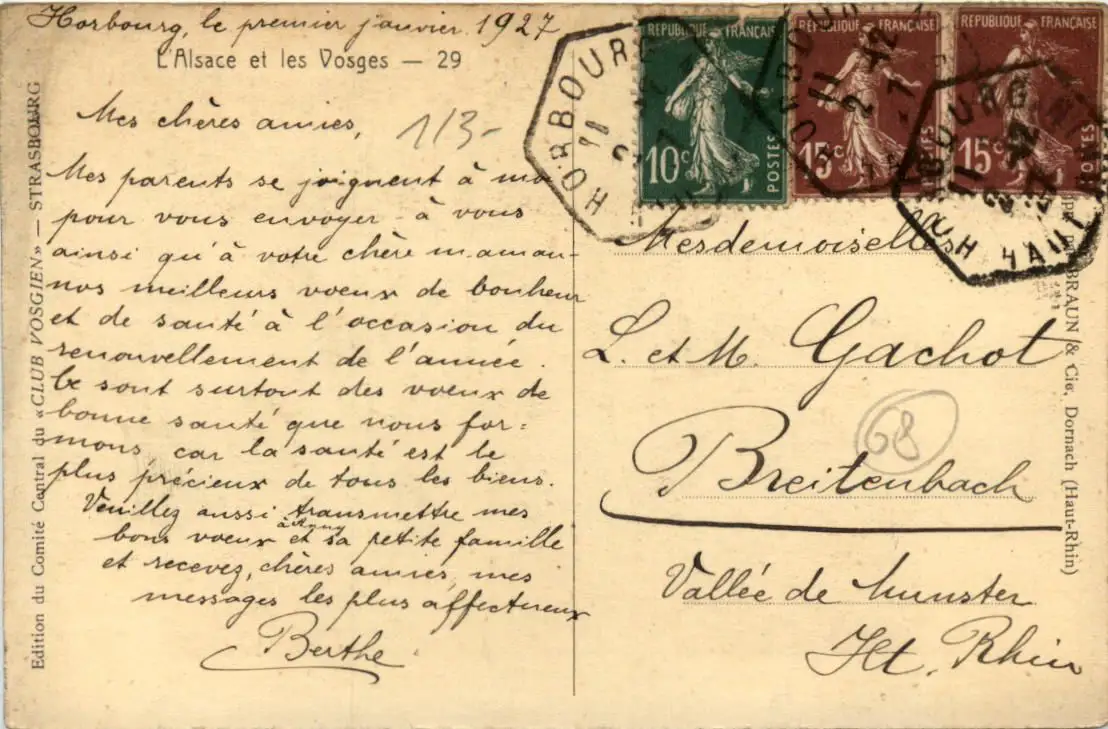 Horbourg, le premier janvier 1927
L'Alsace et les Vosges — 29
Mes chères amies,
1/3-
Mes parents se joignent à moi
pour vous envoyer à vous
ainsi qu'à votre chère maman
nos meilleurs voeux de bonheur
et de santé à l'occasion du
renouvellement de l'année.
Ce sont surtout des voeux de
bonne santé que nous for=
mons car la santé est le
plus précieux de tous les biens.
Veuillez aussi transmettre mes
bons voeux à Anny et sa petite famille
et recevez, chères amies, mes
messages les plus affectueux
Berthe
Edition du Comité Central du «CLUB VOSGIEN» — STRASBOURG
RÉPUBLIQUE FRANÇAISE
10c POSTES
RÉPUBLIQUE FRANÇAISE
15c POSTES
RÉPUBLIQUE FRANÇAISE
15c POSTES
HORBOURG
11
HORBOURG
11 12
2 -7
HORBOURG
11 12
HAUT RHIN
Mesdemoiselles
L. et M. Gachot
68
Breitenbach
Vallée de Munster
Ht. Rhin
BRAUN & Cie, Dornach (Haut-Rhin)